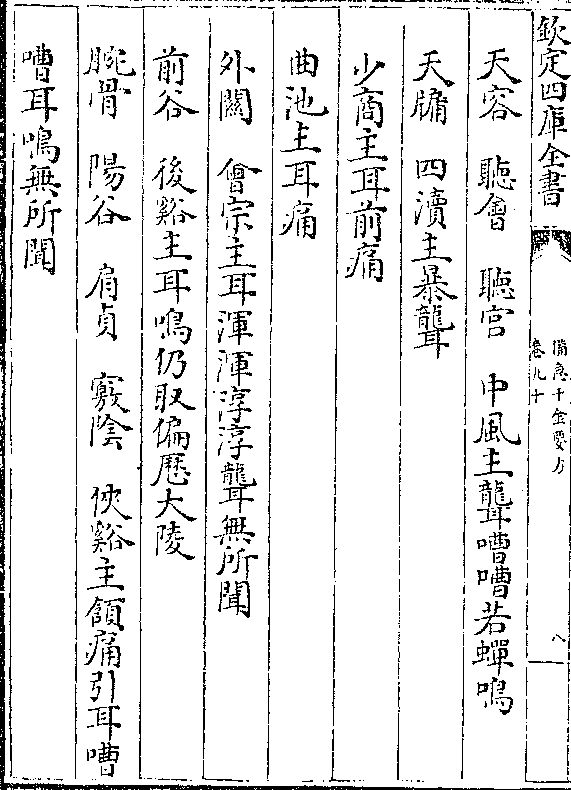 欽定四庫全書
備急千金要方
卷九十
八
天容 聽會 聽宫 中風主聾嘈嘈若蟬鳴
天牖 四瀆主暴聾
少商主耳前痛
曲池主耳痛
外關 會宗主耳渾渾淳淳聾無所聞
前谷 後谿主耳鳴仍取偏歷大陵
腕骨 陽谷 肩貞 竅陰 俠谿主頷痛引耳嘈
嘈耳鳴無所聞